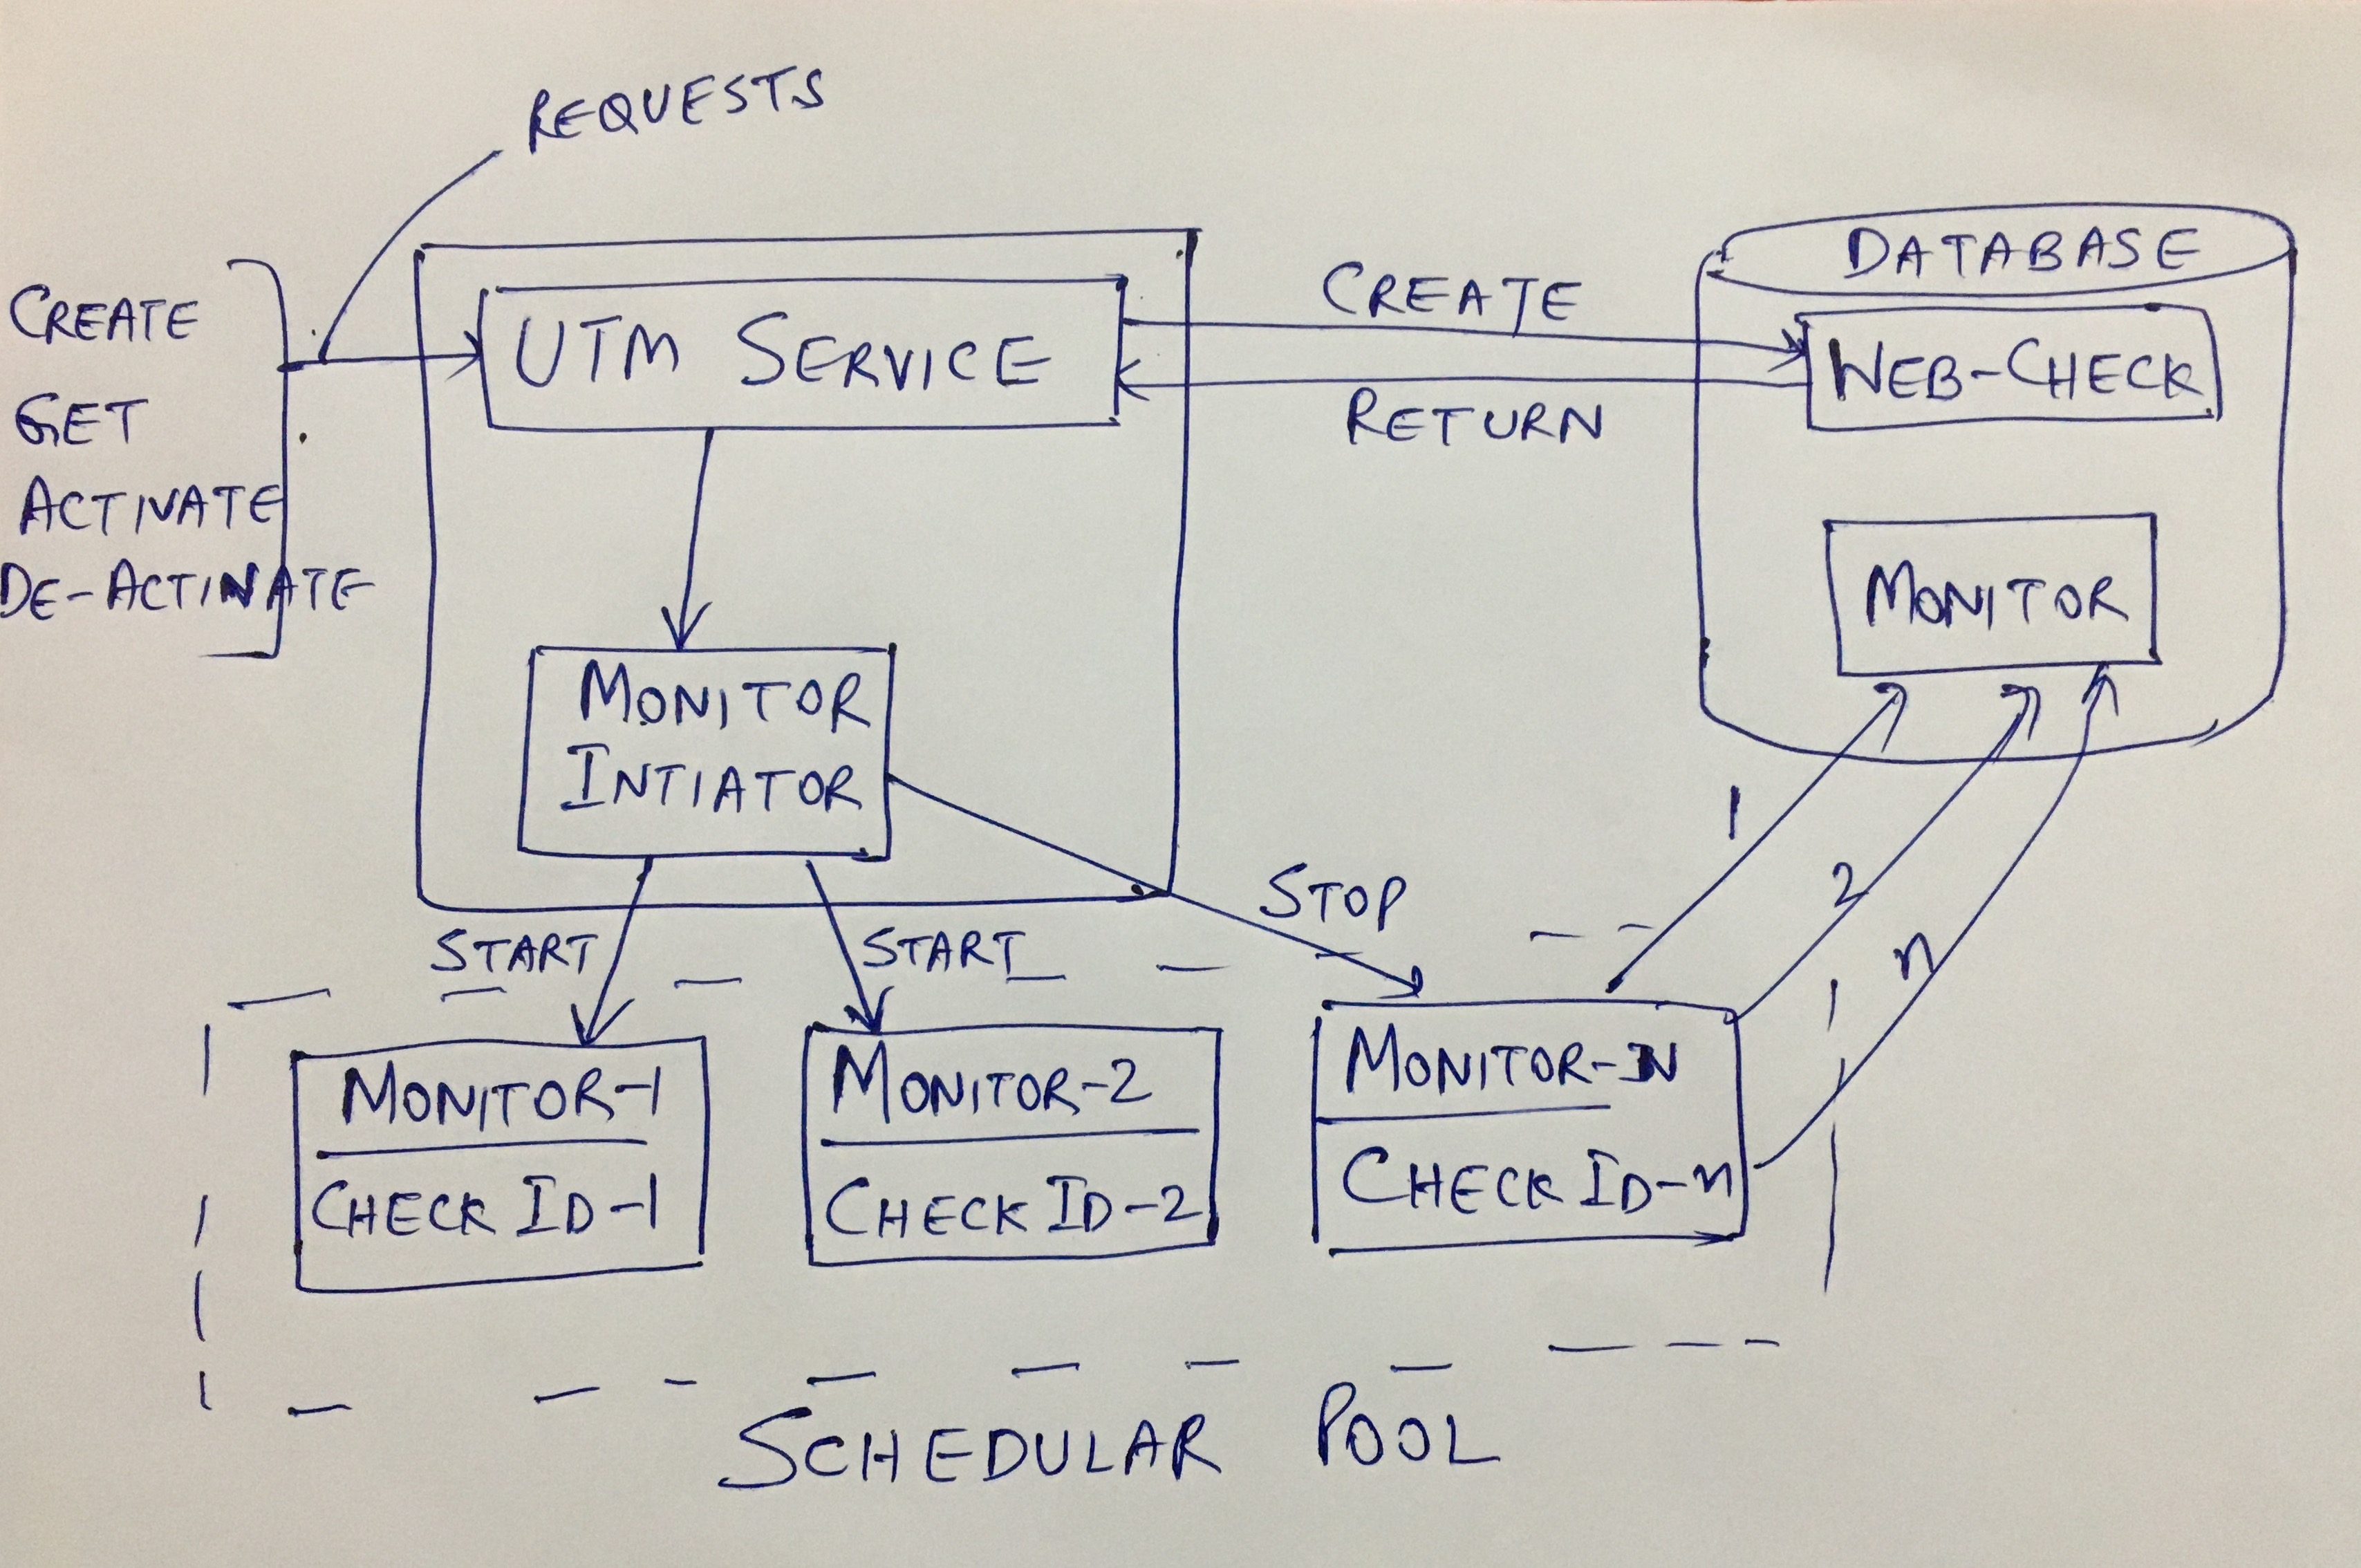 REQUESTS
CREATE
GET
ACTIVATE
DE-ACTIVATE
UTM SERVICE
CREATE
RETURN
DATABASE
WEB-CHECK
MONITOR
MONITOR
INTIATOR
START
START
STOP
1
2
n
MONITOR-1
CHECK ID-1
MONITOR-2
CHECK ID-2
MONITOR-N
CHECK ID-n
SCHEDULAR POOL